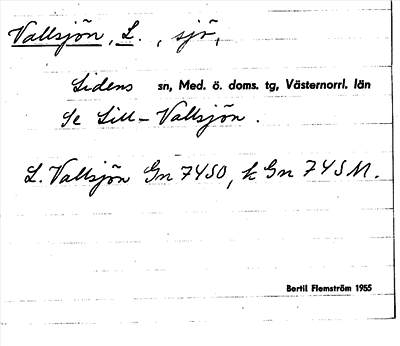 Vallsjön, L. , sjö,
Lidens sn, Med. ö. doms. tg, Västernorrl. län
Se Lill-Vallsjön .
L. Vallsjön Gn 7450, k Gn 745M.
Bertil Flemström 1955